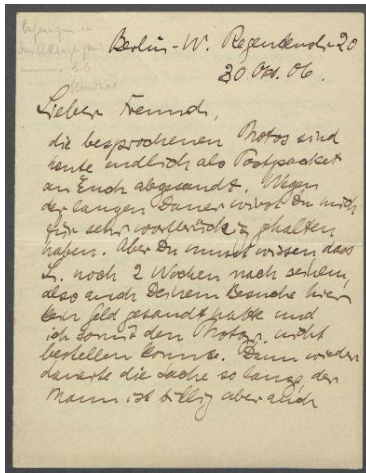 Berlin-W. Regentenstr. 20
30 Okt. 06.
Lieber Freund,
die besprochenen Photos sind
heute endlich als Postpacket
an Euch abgesandt. Wegen
der langen Dauer wirst Du mich
für sehr gehalten
haben. Aber Du musst wissen dass
L. noch 2 Wochen nach seinem,
also auch Deinem Besuche hier
kein Geld gesandt hatte und
ich somit den Photogr. nicht
bestellen konnte. Dann wieder
dauerte die Sache so lange der
Mann ist billig aber auch